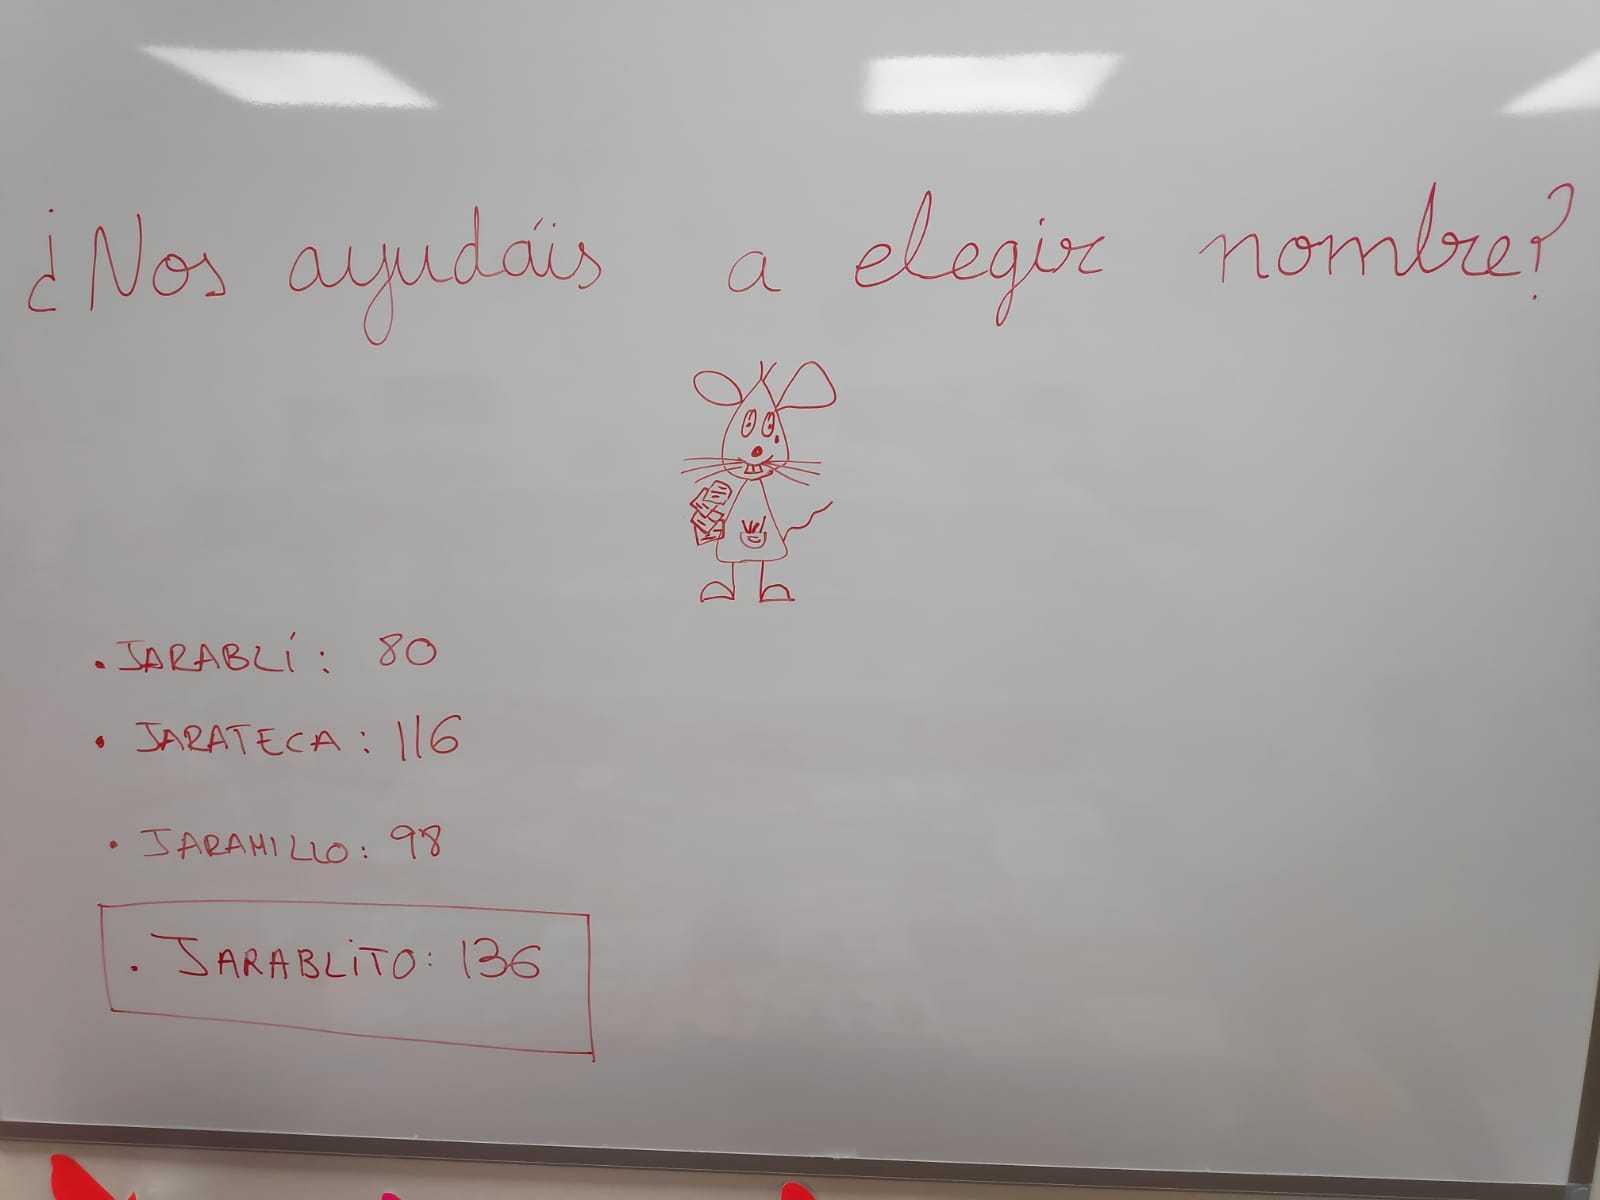 ¿Nos ayudáis a elegir nombre?
. JARABLÍ: 80
. JARATECA: 116
. JARAMILLO: 98
. JARABLiTO: 136